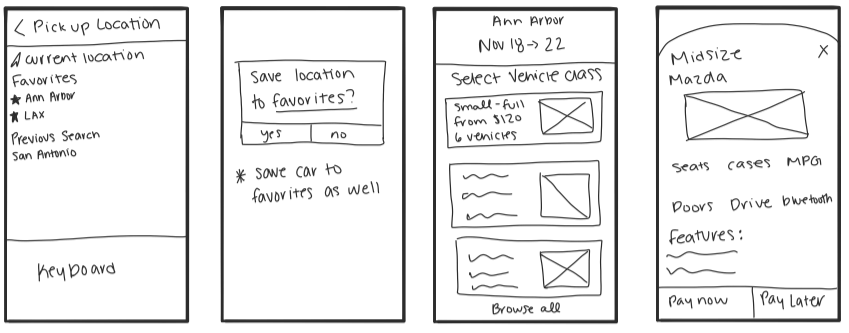 < Pick up Location
Current location
Favorites
★ Ann Arbor
★ LAX
Previous Search
San Antonio
Keyboard
Save location
to favorites?
yes
no
* save car to
favorites as well
Ann Arbor
Nov 18 → 22
Select Vehicle class
small-full
from $120
6 vehicles
Browse all
Midsize
X
Mazda
Seats cases MPG
Doors Drive bluetooth
Features:
Pay now
Pay Later